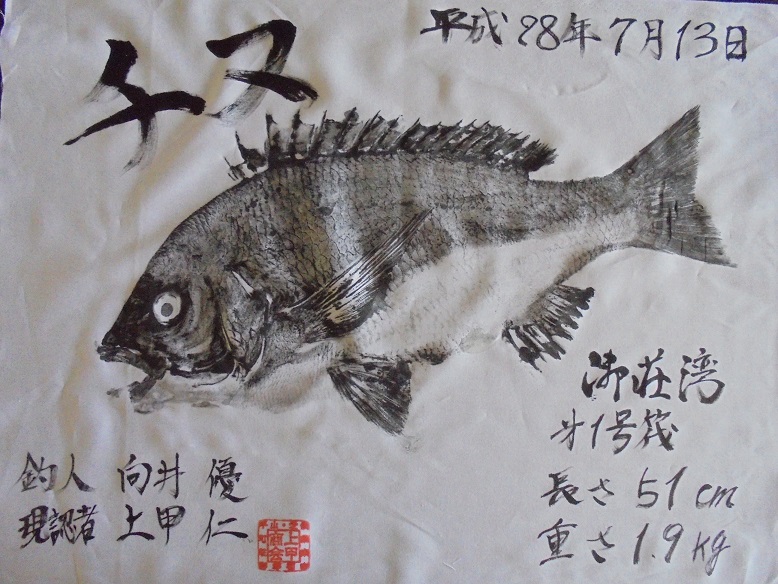 チヌ
平成28年7月13日
御荘湾
才1号筏
長さ 51 cm
重さ 1.9 kg
釣人 向井 優
現認者 上甲 仁